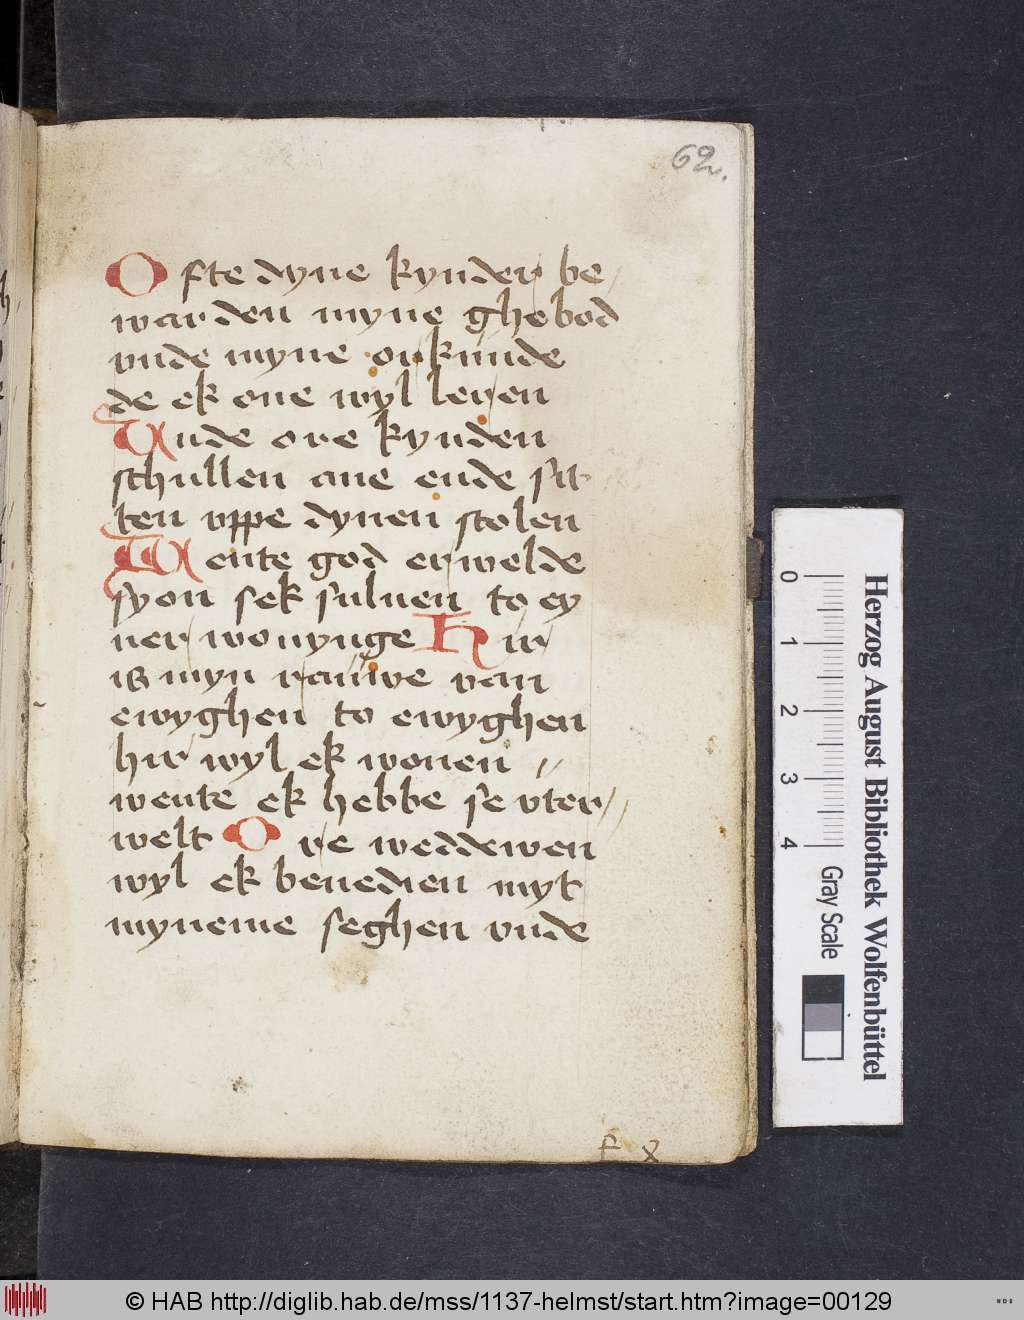 62.
Ofte dyne kynder be
warden myne ghebod
vnde myne orkunde
de ek one wyl leren
Vnde ore kynden
schullen ane ende sit
ten vppe dynen stolen
Wente god erwelde
syon sek suluen to ey
ner wonynge Hir
is myn rauwe van
ewyghen to ewyghen
hir wyl ek wonen
wente ek hebbe se vter
welt Ore weddewen
wyl ek benedien myt
myneme seghen vnde
f x
0 1 2 3 4
Gray Scale
Herzog August Bibliothek Wolfenbüttel
© HAB http://diglib.hab.de/mss/1137-helmst/start.htm?image=00129